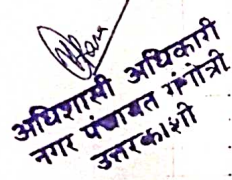 अधिशासी अधिकारी
नगर पंचायत गंगोत्री
उत्तरकाशी